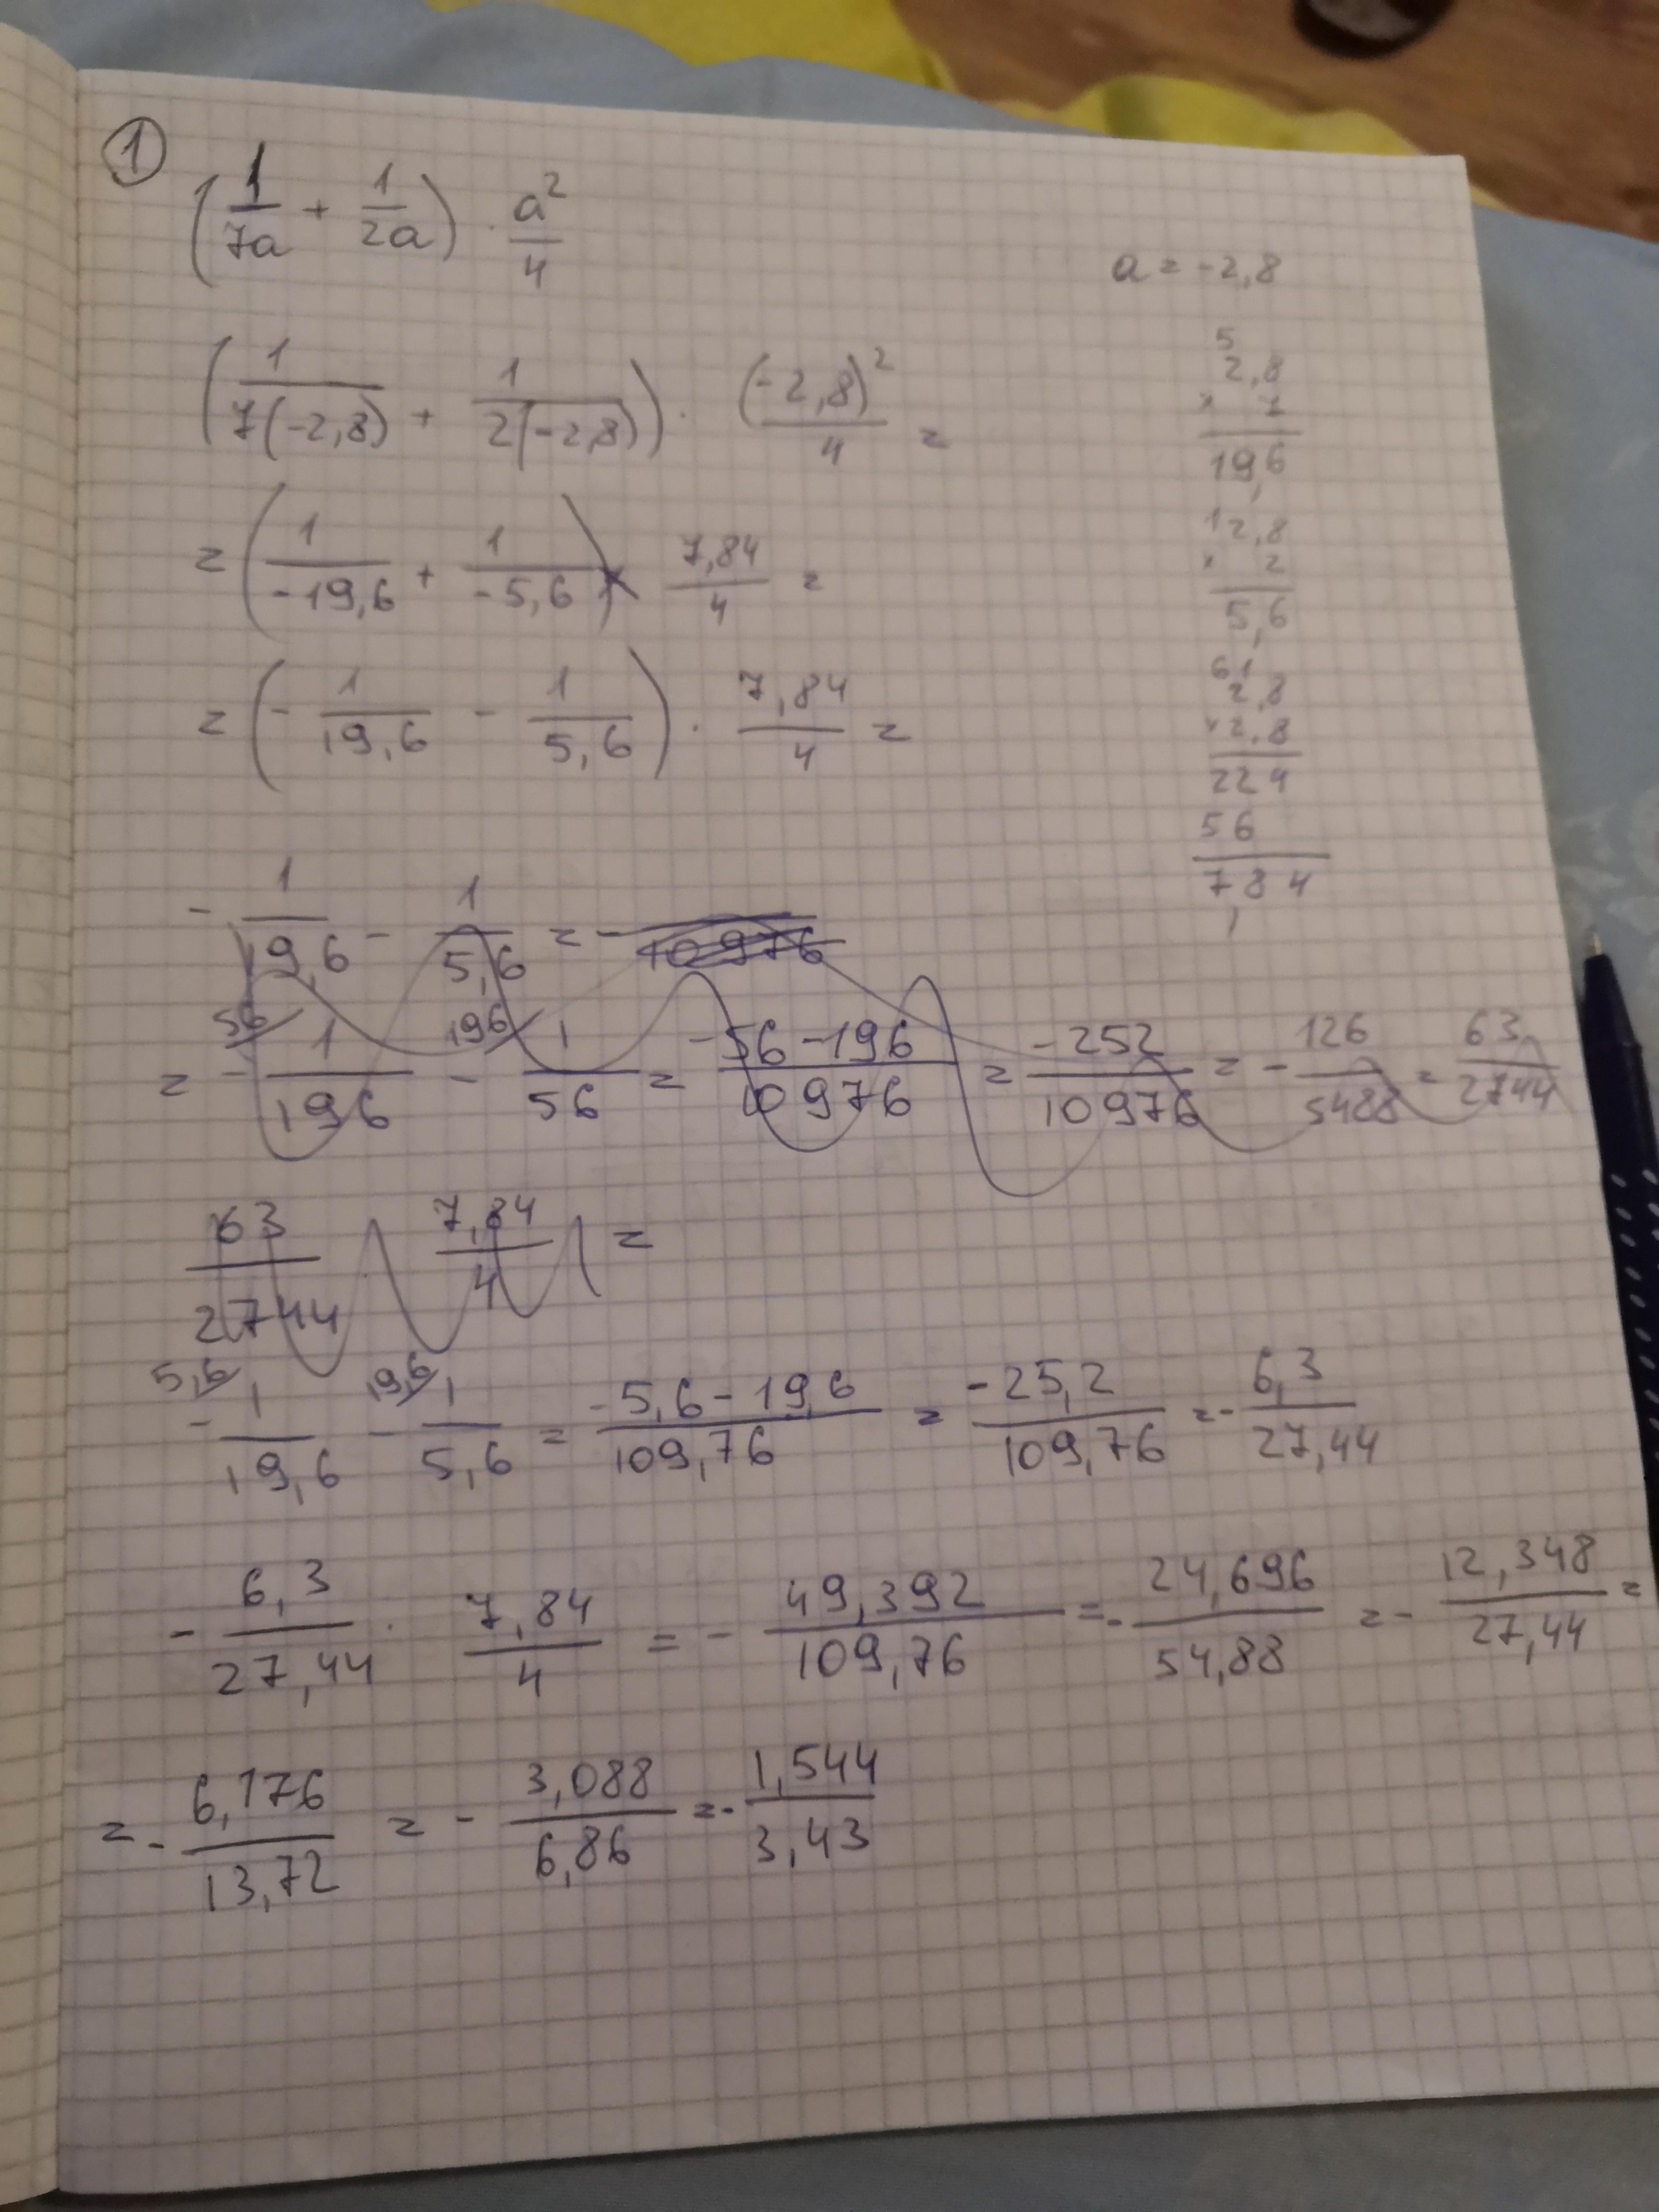 1
(1/7a + 1/2a) · a²/4
a = -2,8
(1/7(-2,8) + 1/2(-2,8)) · (-2,8)²/4 =
5
2,8
× 7
19,6
= (1/-19,6 + 1/-5,6) · 7,84/4 =
1 2,8
× 2
5,6
= (- 1/19,6 - 1/5,6) · 7,84/4 =
6 1
2,8
× 2,8
224
56
784
,
- 1/19,6 - 1/5,6 = - /10976
56 196
= - 1/196 - 1/56 = -56-196/10976 = -252/10976 = - 126/5488 = 63/2744
63/2744 · 7,84/4 =
5,6 19,6
- 1/19,6 - 1/5,6 = -5,6-19,6/109,76 = -25,2/109,76 = - 6,3/27,44
- 6,3/27,44 · 7,84/4 = - 49,392/109,76 = - 24,696/54,88 = - 12,348/27,44 =
= - 6,176/13,72 = - 3,088/6,86 = - 1,544/3,43